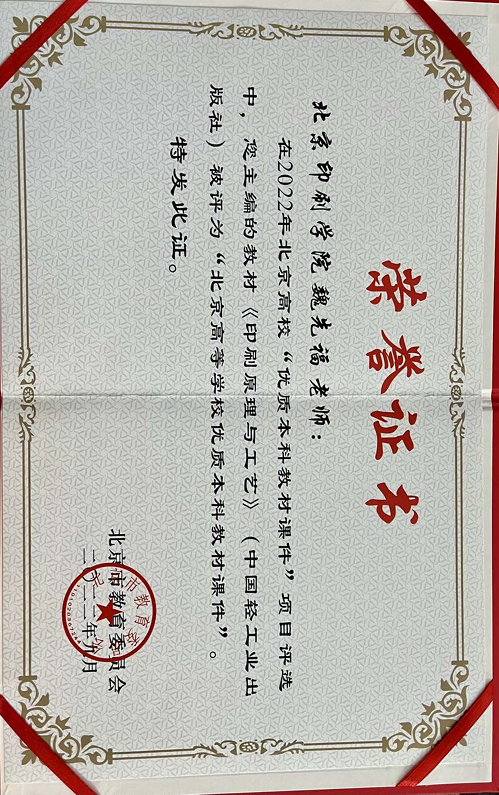 荣誉证书
北京印刷学院魏先福老师：
在2022年北京高校“优质本科教材课件”项目评选
中，您主编的教材《印刷原理与工艺》（中国轻工业出
版社）被评为“北京高等学校优质本科教材课件”。
特发此证。
北京市教育委员会
二〇二二年九月